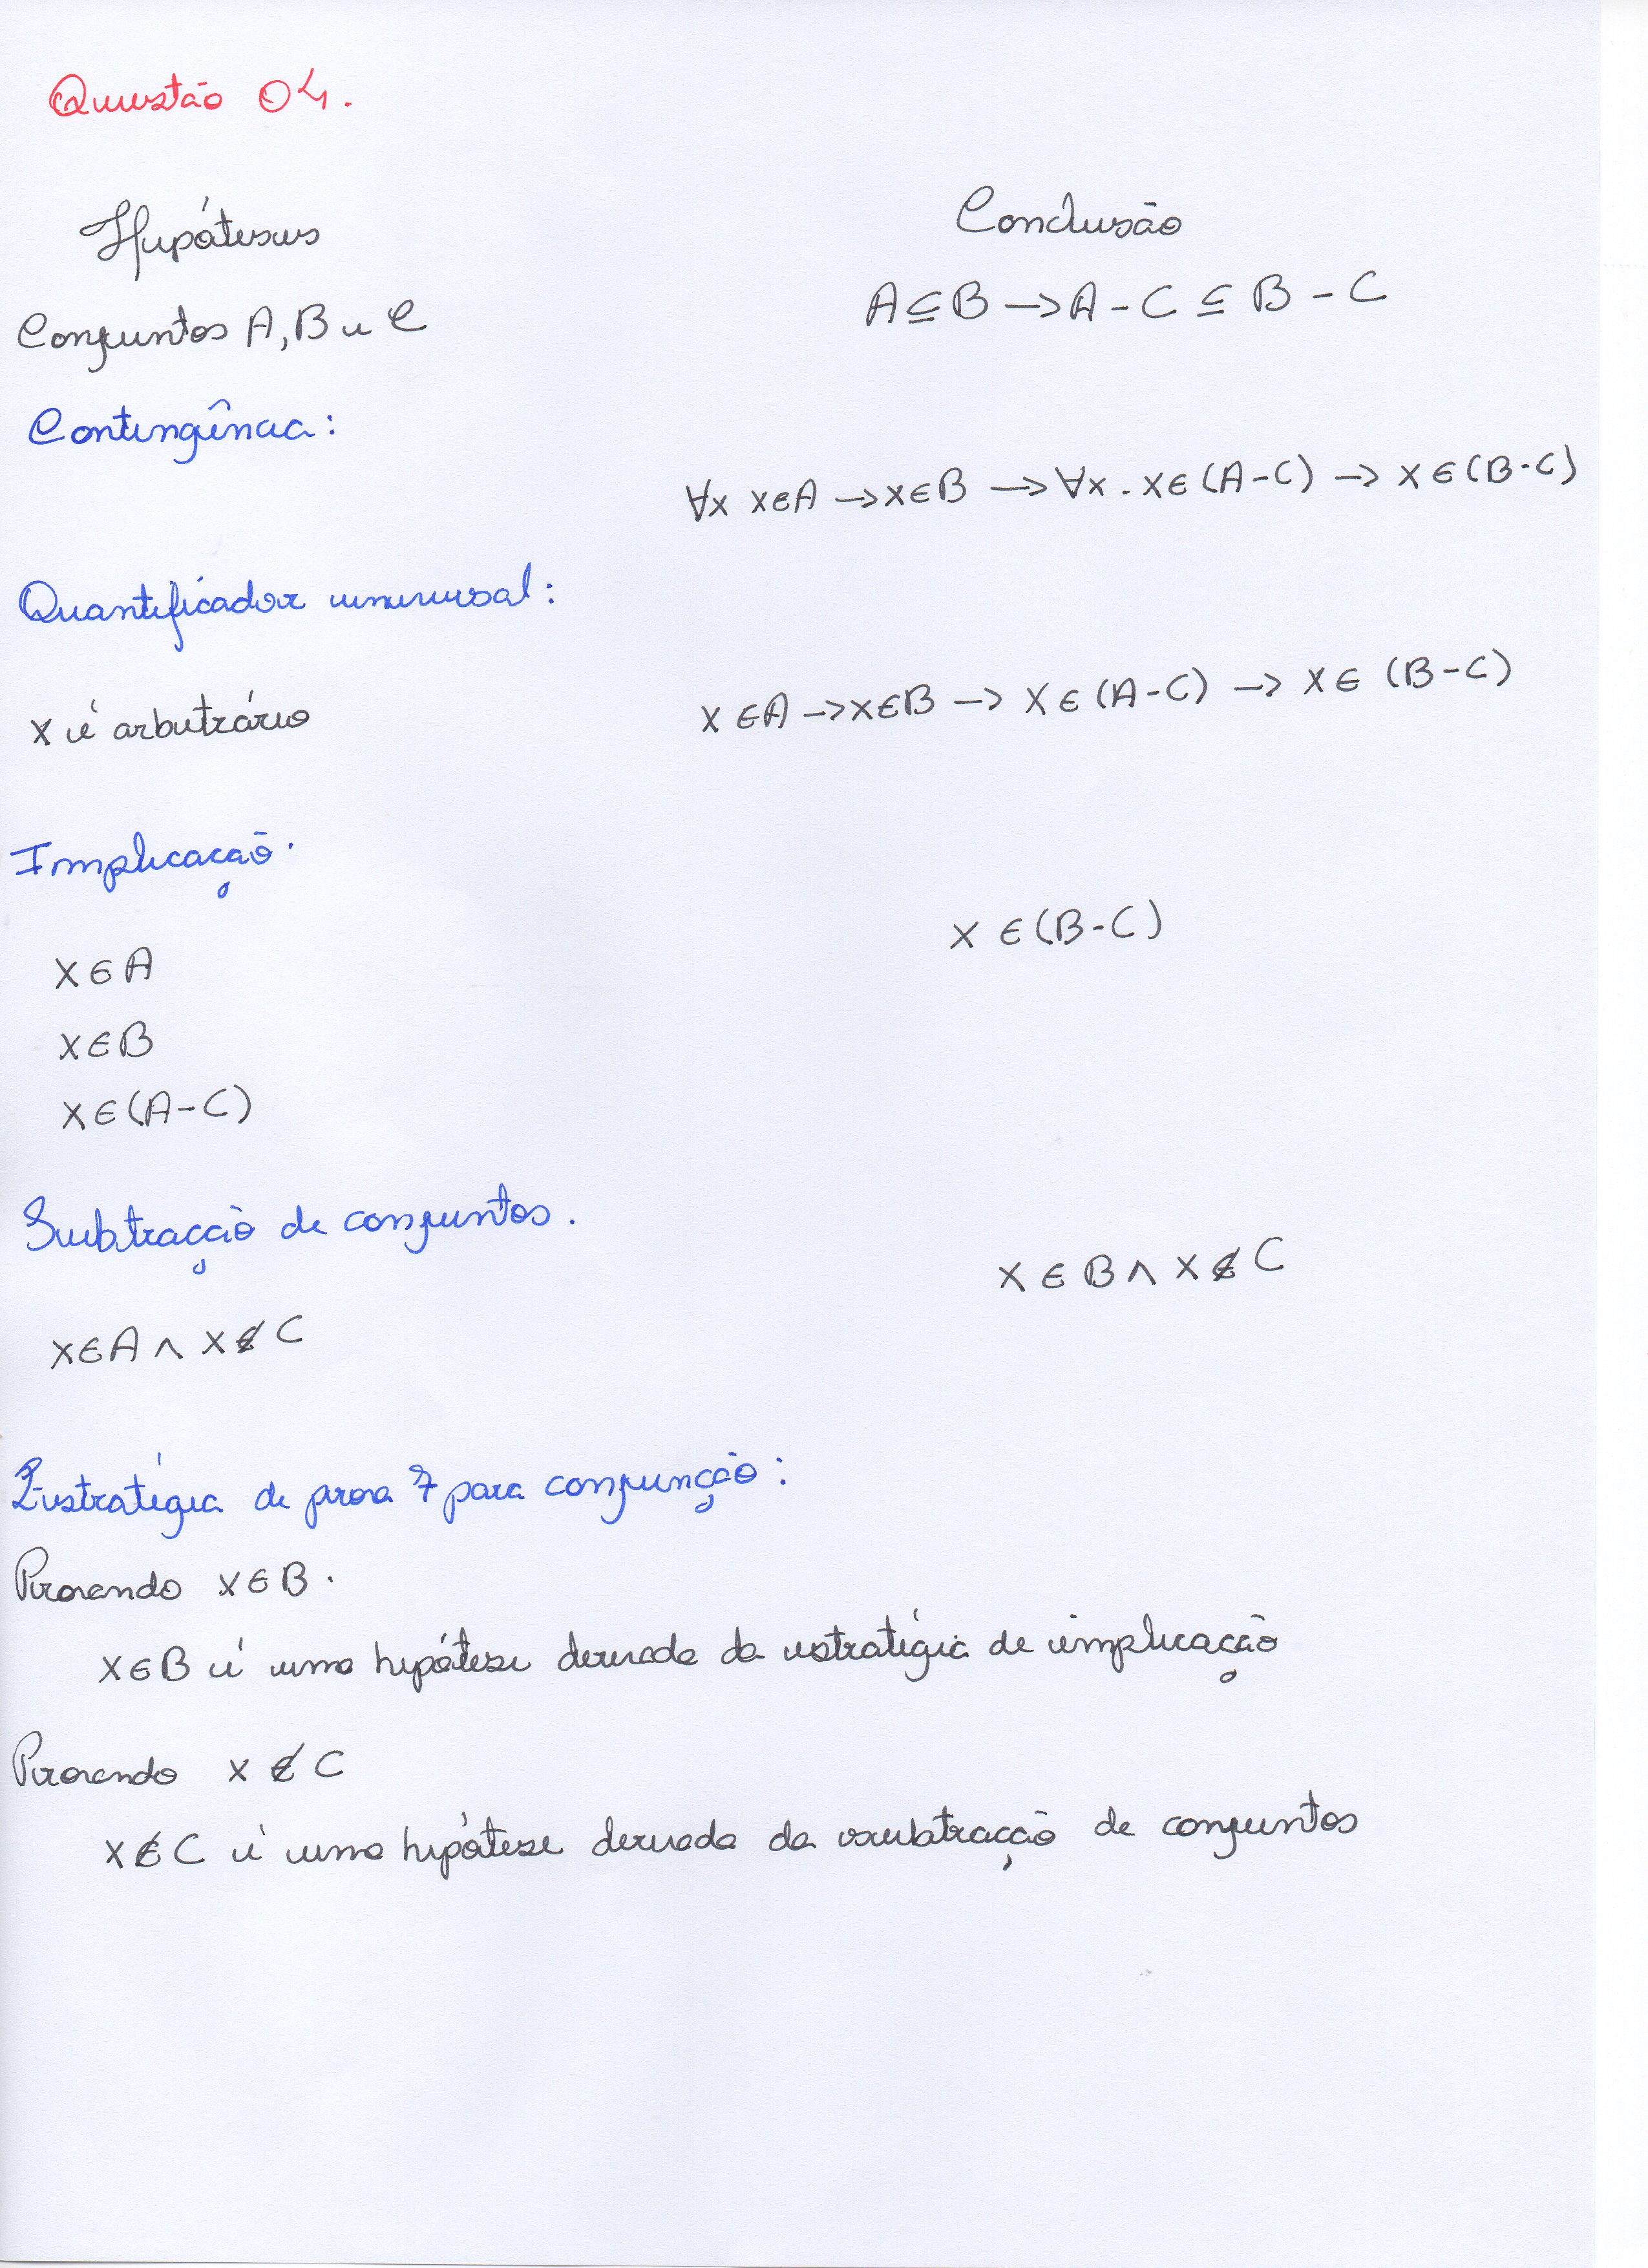 Questão 04.
Hipóteses
Conclusão
Conjuntos A, B e C
A ⊆ B → A - C ⊆ B - C
Contingência:
∀x x ∈ A → x ∈ B → ∀x . x ∈ (A - C) → x ∈ (B - C)
Quantificador universal:
x é arbitrário
x ∈ A → x ∈ B → x ∈ (A - C) → x ∈ (B - C)
Implicação.
x ∈ (B - C)
x ∈ A
x ∈ B
x ∈ (A - C)
Subtração de conjuntos.
x ∈ B ∧ x ∉ C
x ∈ A ∧ x ∉ C
Estratégia de prova 7 para conjunção:
Provando x ∈ B.
x ∈ B é uma hipótese derivada da estratégia de implicação
Provando x ∉ C
x ∉ C é uma hipótese derivada da subtração de conjuntos